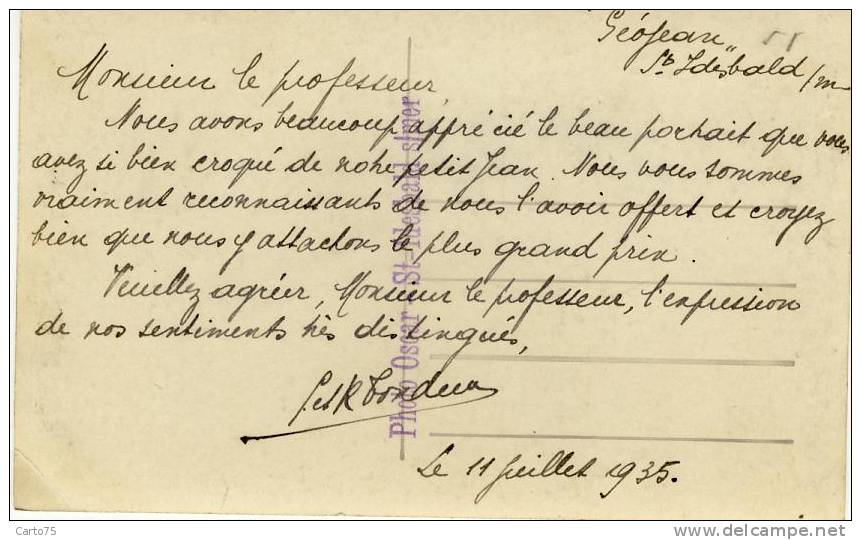 GéoJean"
St Idesbald /m
Monsieur le professeur,
Nous avons beaucoup apprécié le beau portrait que vous
avez si bien croqué de notre petit Jean. Nous vous sommes
vraiment reconnaissants de nous l'avoir offert et croyez
bien que nous y attachons le plus grand prix.
Veuillez agréer, Monsieur le professeur, l'expression
de nos sentiments très distingués,
Le 11 juillet 1935.
Photo Oscar - St-Idesbald s/mer
Carto75
www.delcampe.net